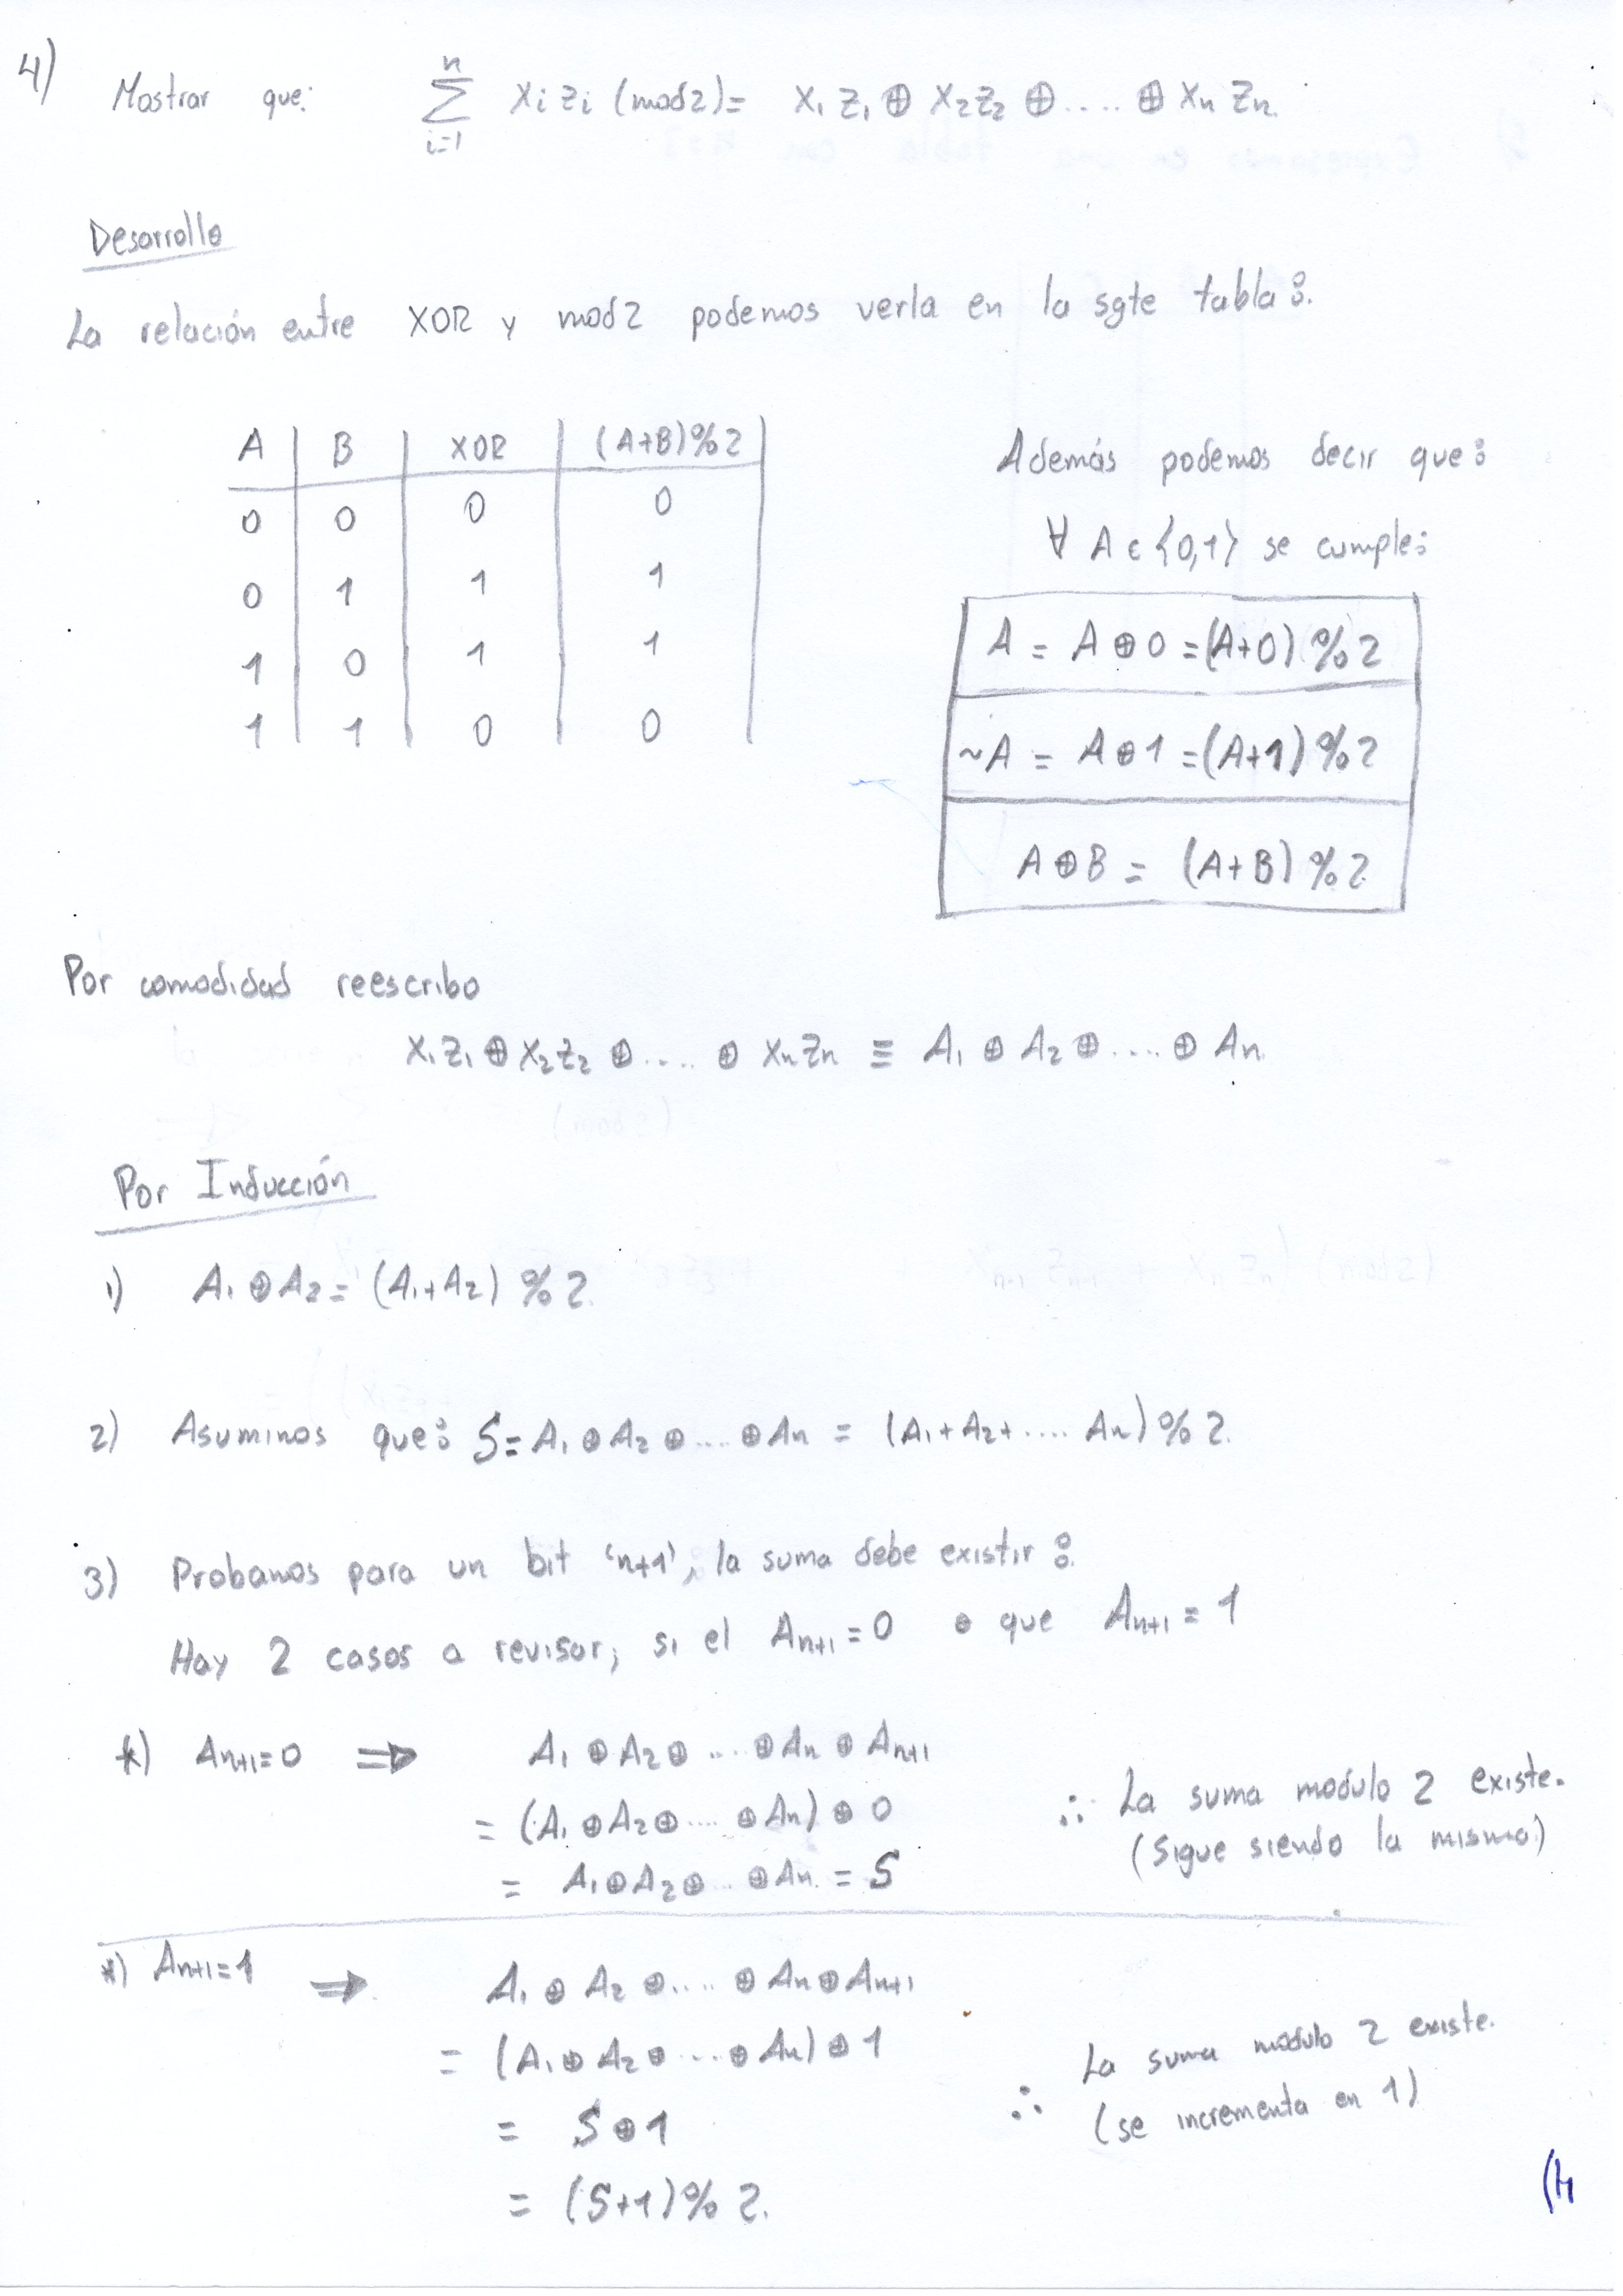 4) Mostrar que: n∑i=1 xi zi (mod2) = x1 z1 ⊕ x2 z2 ⊕ .... ⊕ xn zn.
Desarrollo
La relación entre XOR y mod2 podemos verla en la sgte tabla:
A | B | XOR | (A+B)%2
0 0 0 0
0 1 1 1
1 0 1 1
1 1 0 0
Además podemos decir que:
∀ A ∈ {0,1} se cumple:
A = A ⊕ 0 = (A+0) % 2
~A = A ⊕ 1 = (A+1) % 2
A ⊕ B = (A+B) % 2
Por comodidad reescribo
x1 z1 ⊕ x2 z2 ⊕ .... ⊕ xn zn ≡ A1 ⊕ A2 ⊕ .... ⊕ An
Por Inducción
1) A1 ⊕ A2 = (A1+A2) % 2.
2) Asumimos que: S = A1 ⊕ A2 ⊕ .... ⊕ An = (A1+A2+.... An) % 2.
3) Probamos para un bit 'n+1', la suma debe existir:
Hay 2 casos a revisar; si el An+1 = 0 o que An+1 = 1
*) An+1=0 ⇒ A1 ⊕ A2 ⊕ .... ⊕ An ⊕ An+1
= (A1 ⊕ A2 ⊕ .... ⊕ An) ⊕ 0
= A1 ⊕ A2 ⊕ ... ⊕ An = S
∴ La suma modulo 2 existe.
(Sigue siendo la misma)
*) An+1=1 ⇒ A1 ⊕ A2 ⊕ .... ⊕ An ⊕ An+1
= (A1 ⊕ A2 ⊕ .... ⊕ An) ⊕ 1
= S ⊕ 1
= (S+1) % 2.
∴ La suma modulo 2 existe.
(se incrementa en 1)